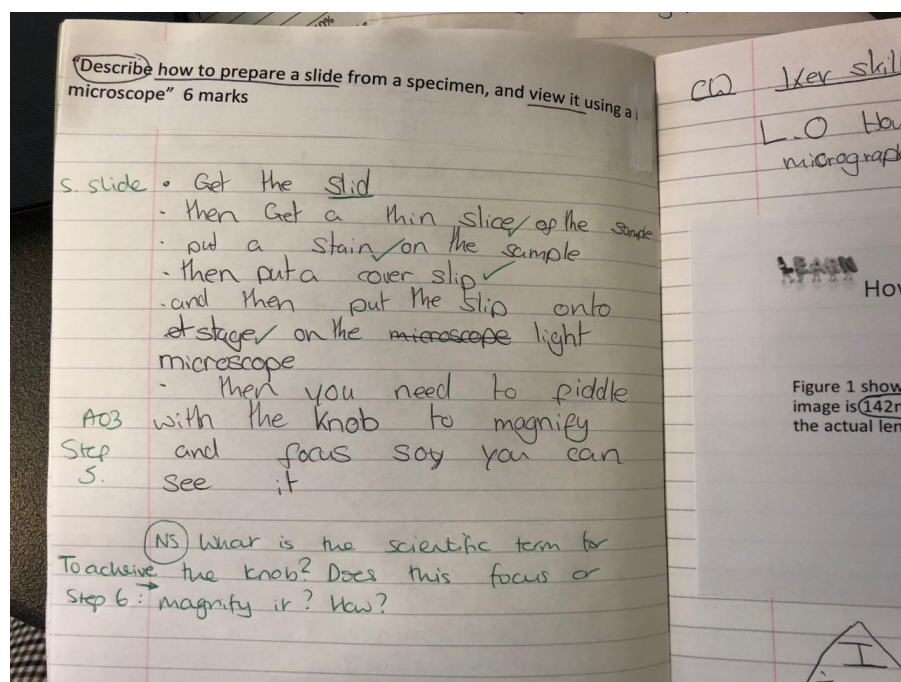 "Describe how to prepare a slide from a specimen, and view it using a
microscope" 6 marks
s. slide • Get the slid
· then Get a thin slice of the sample
· put a stain on the sample
· then put a cover slip
· and then put the slip onto
stage on the microscope light
microscope
· then you need to fiddle
AO3 with the knob to magnify
Step and focus soy you can
5. see it
NS What is the scientific term for
To acheive the knob? Does this focus or
Step 6: magnify it? How?
CW Key skil
L.O How
micrograp
LEARN
Ho
Figure 1 show
image is 142
the actual len
I